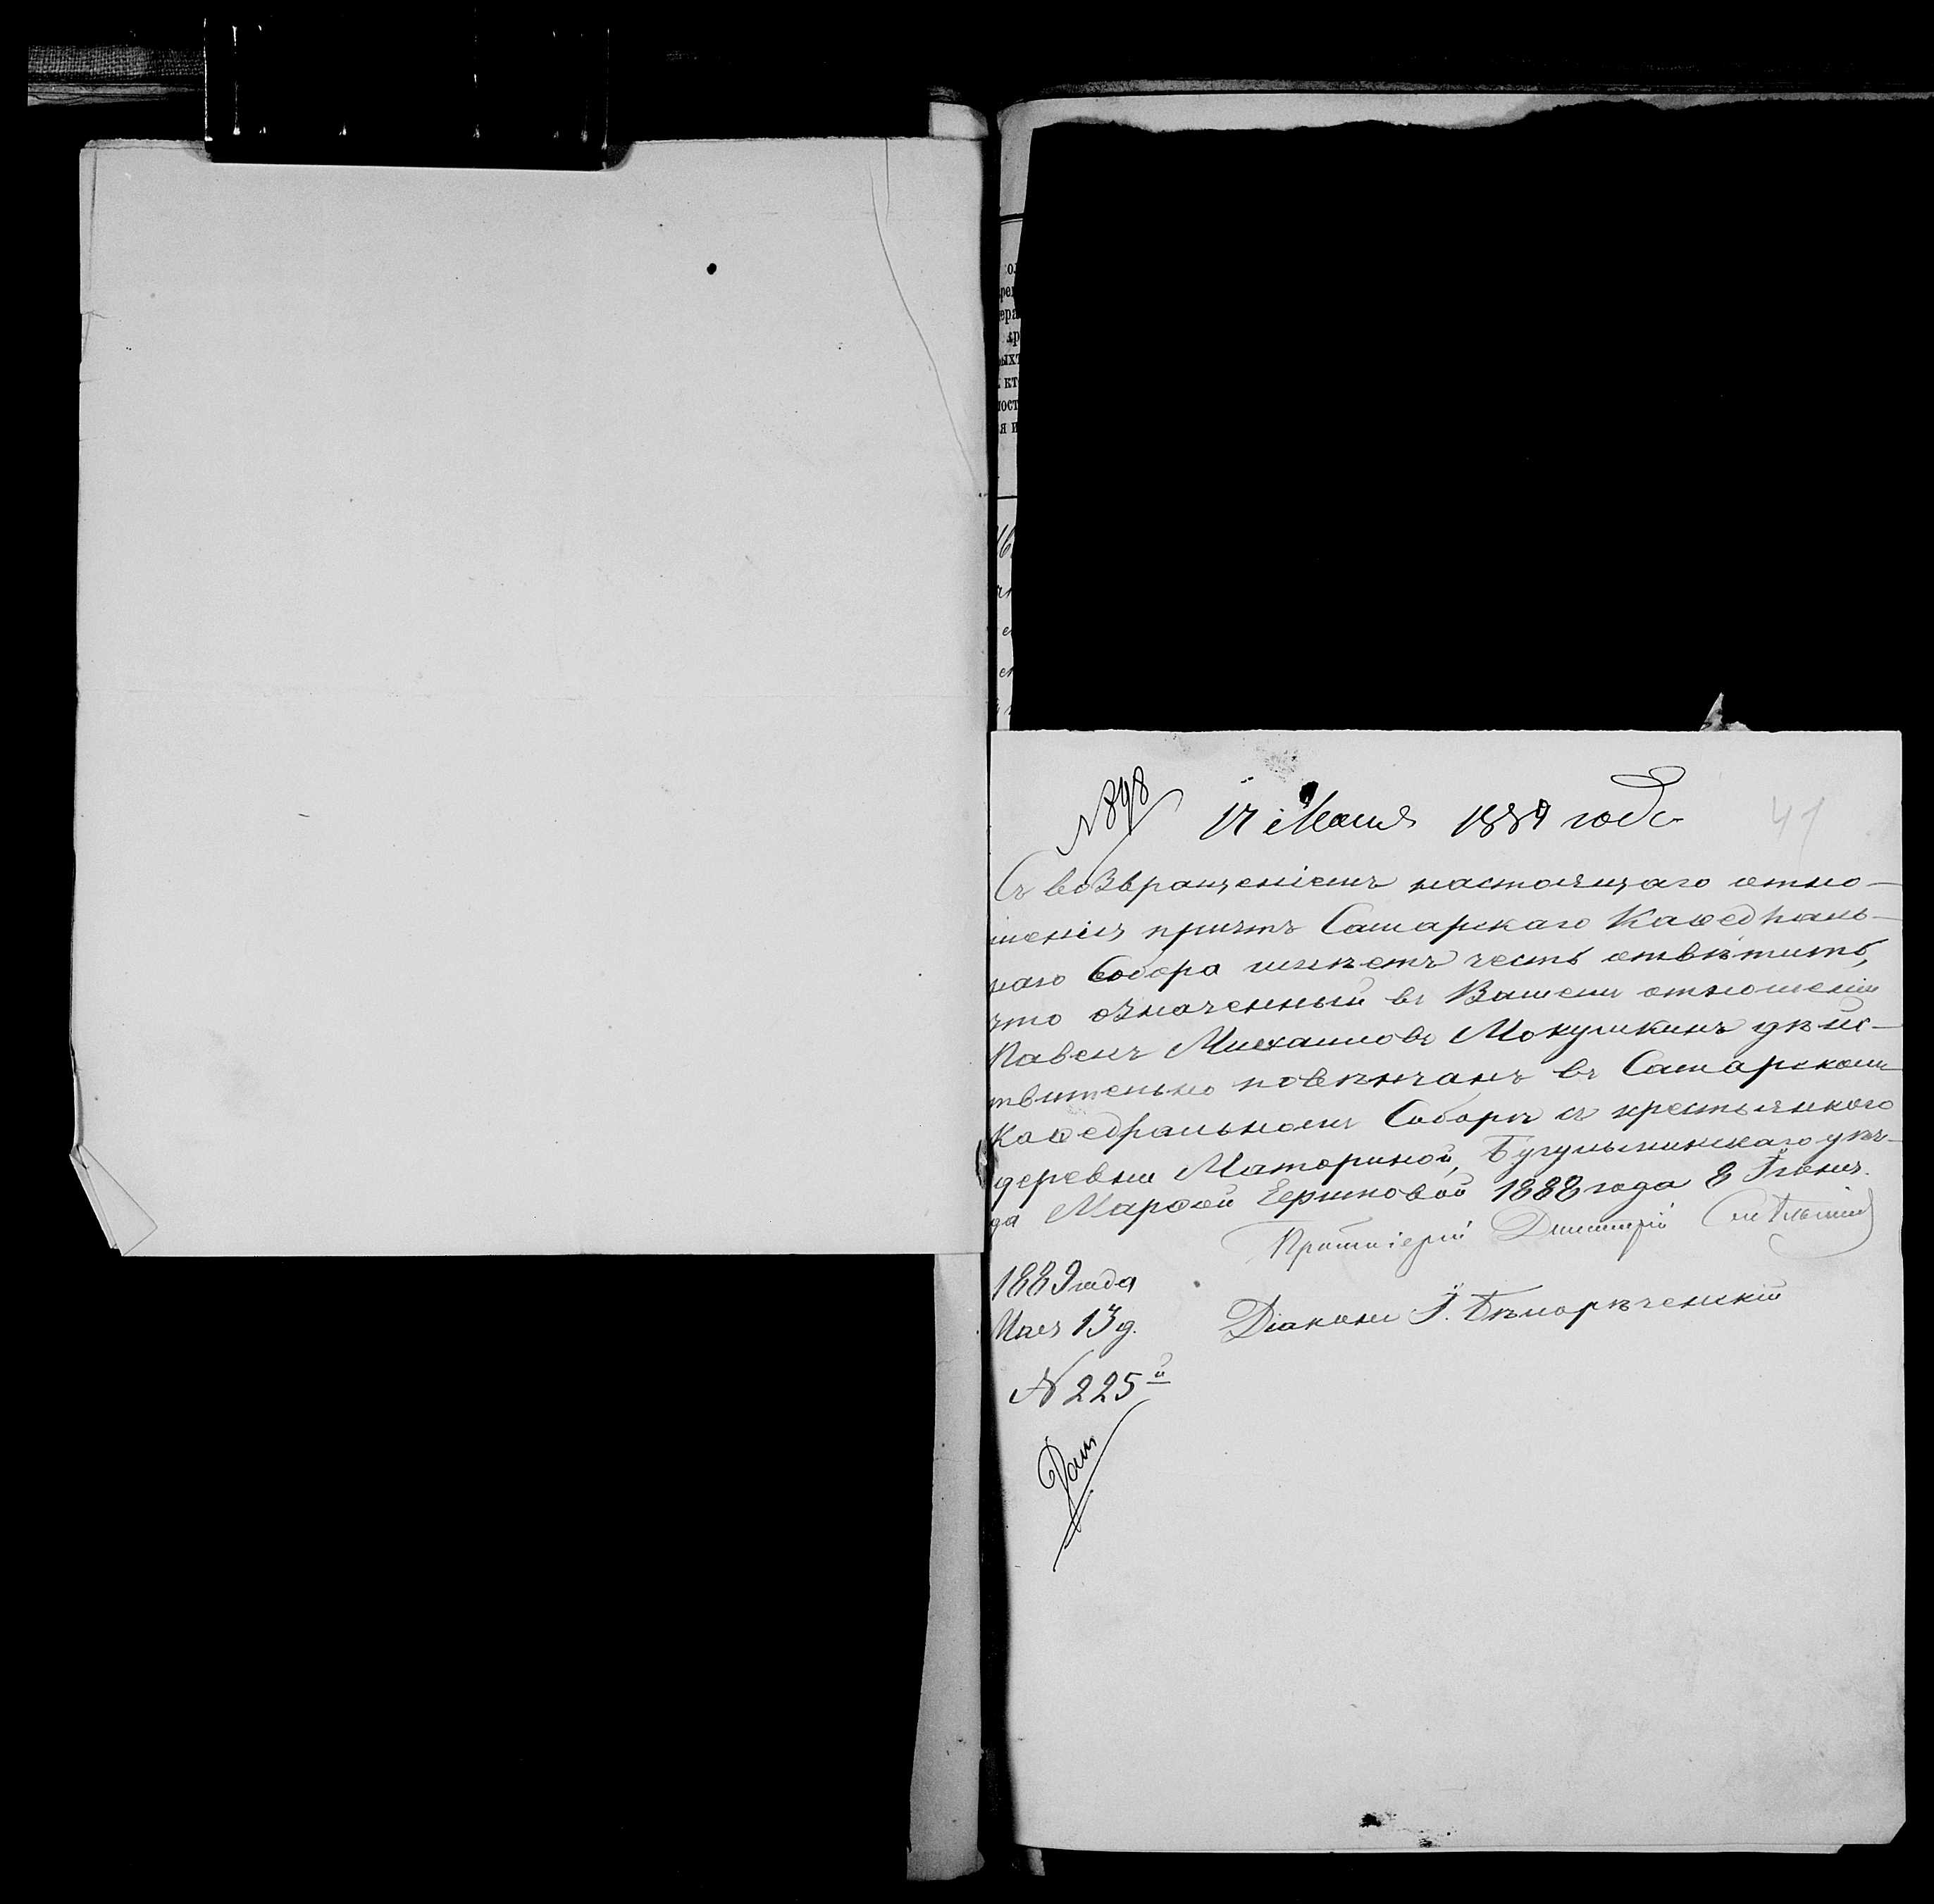 № 898
17 Маія 1889 года
41
Съ возвращеніемъ настоящаго отно-
шенія причтъ Самарскаго Каѳедраль-
наго Собора имѣетъ честь отвѣтить,
что означенный въ Вашемъ отношеніи
Павелъ Михаиловъ Мокушкинъ дѣйс-
твительно повѣнчанъ въ Самарскомъ
Каѳедральномъ Соборѣ съ крестьянкого
деревни Маториной, Бугульминскаго уѣз-
да Марѳой 1888 года 8 Іюня.
Протоіерей Димитрій
1889 года
Мая 13 д.
Діаконъ І. Бѣлорѣченскій
№ 225й